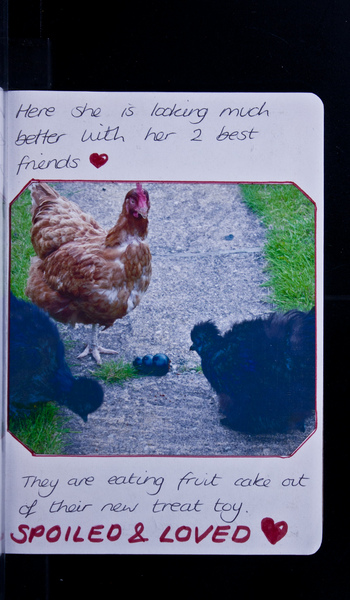 Here she is looking much
better with her 2 best
friends ❤
They are eating fruit cake out
of their new treat toy.
SPOILED & LOVED ❤